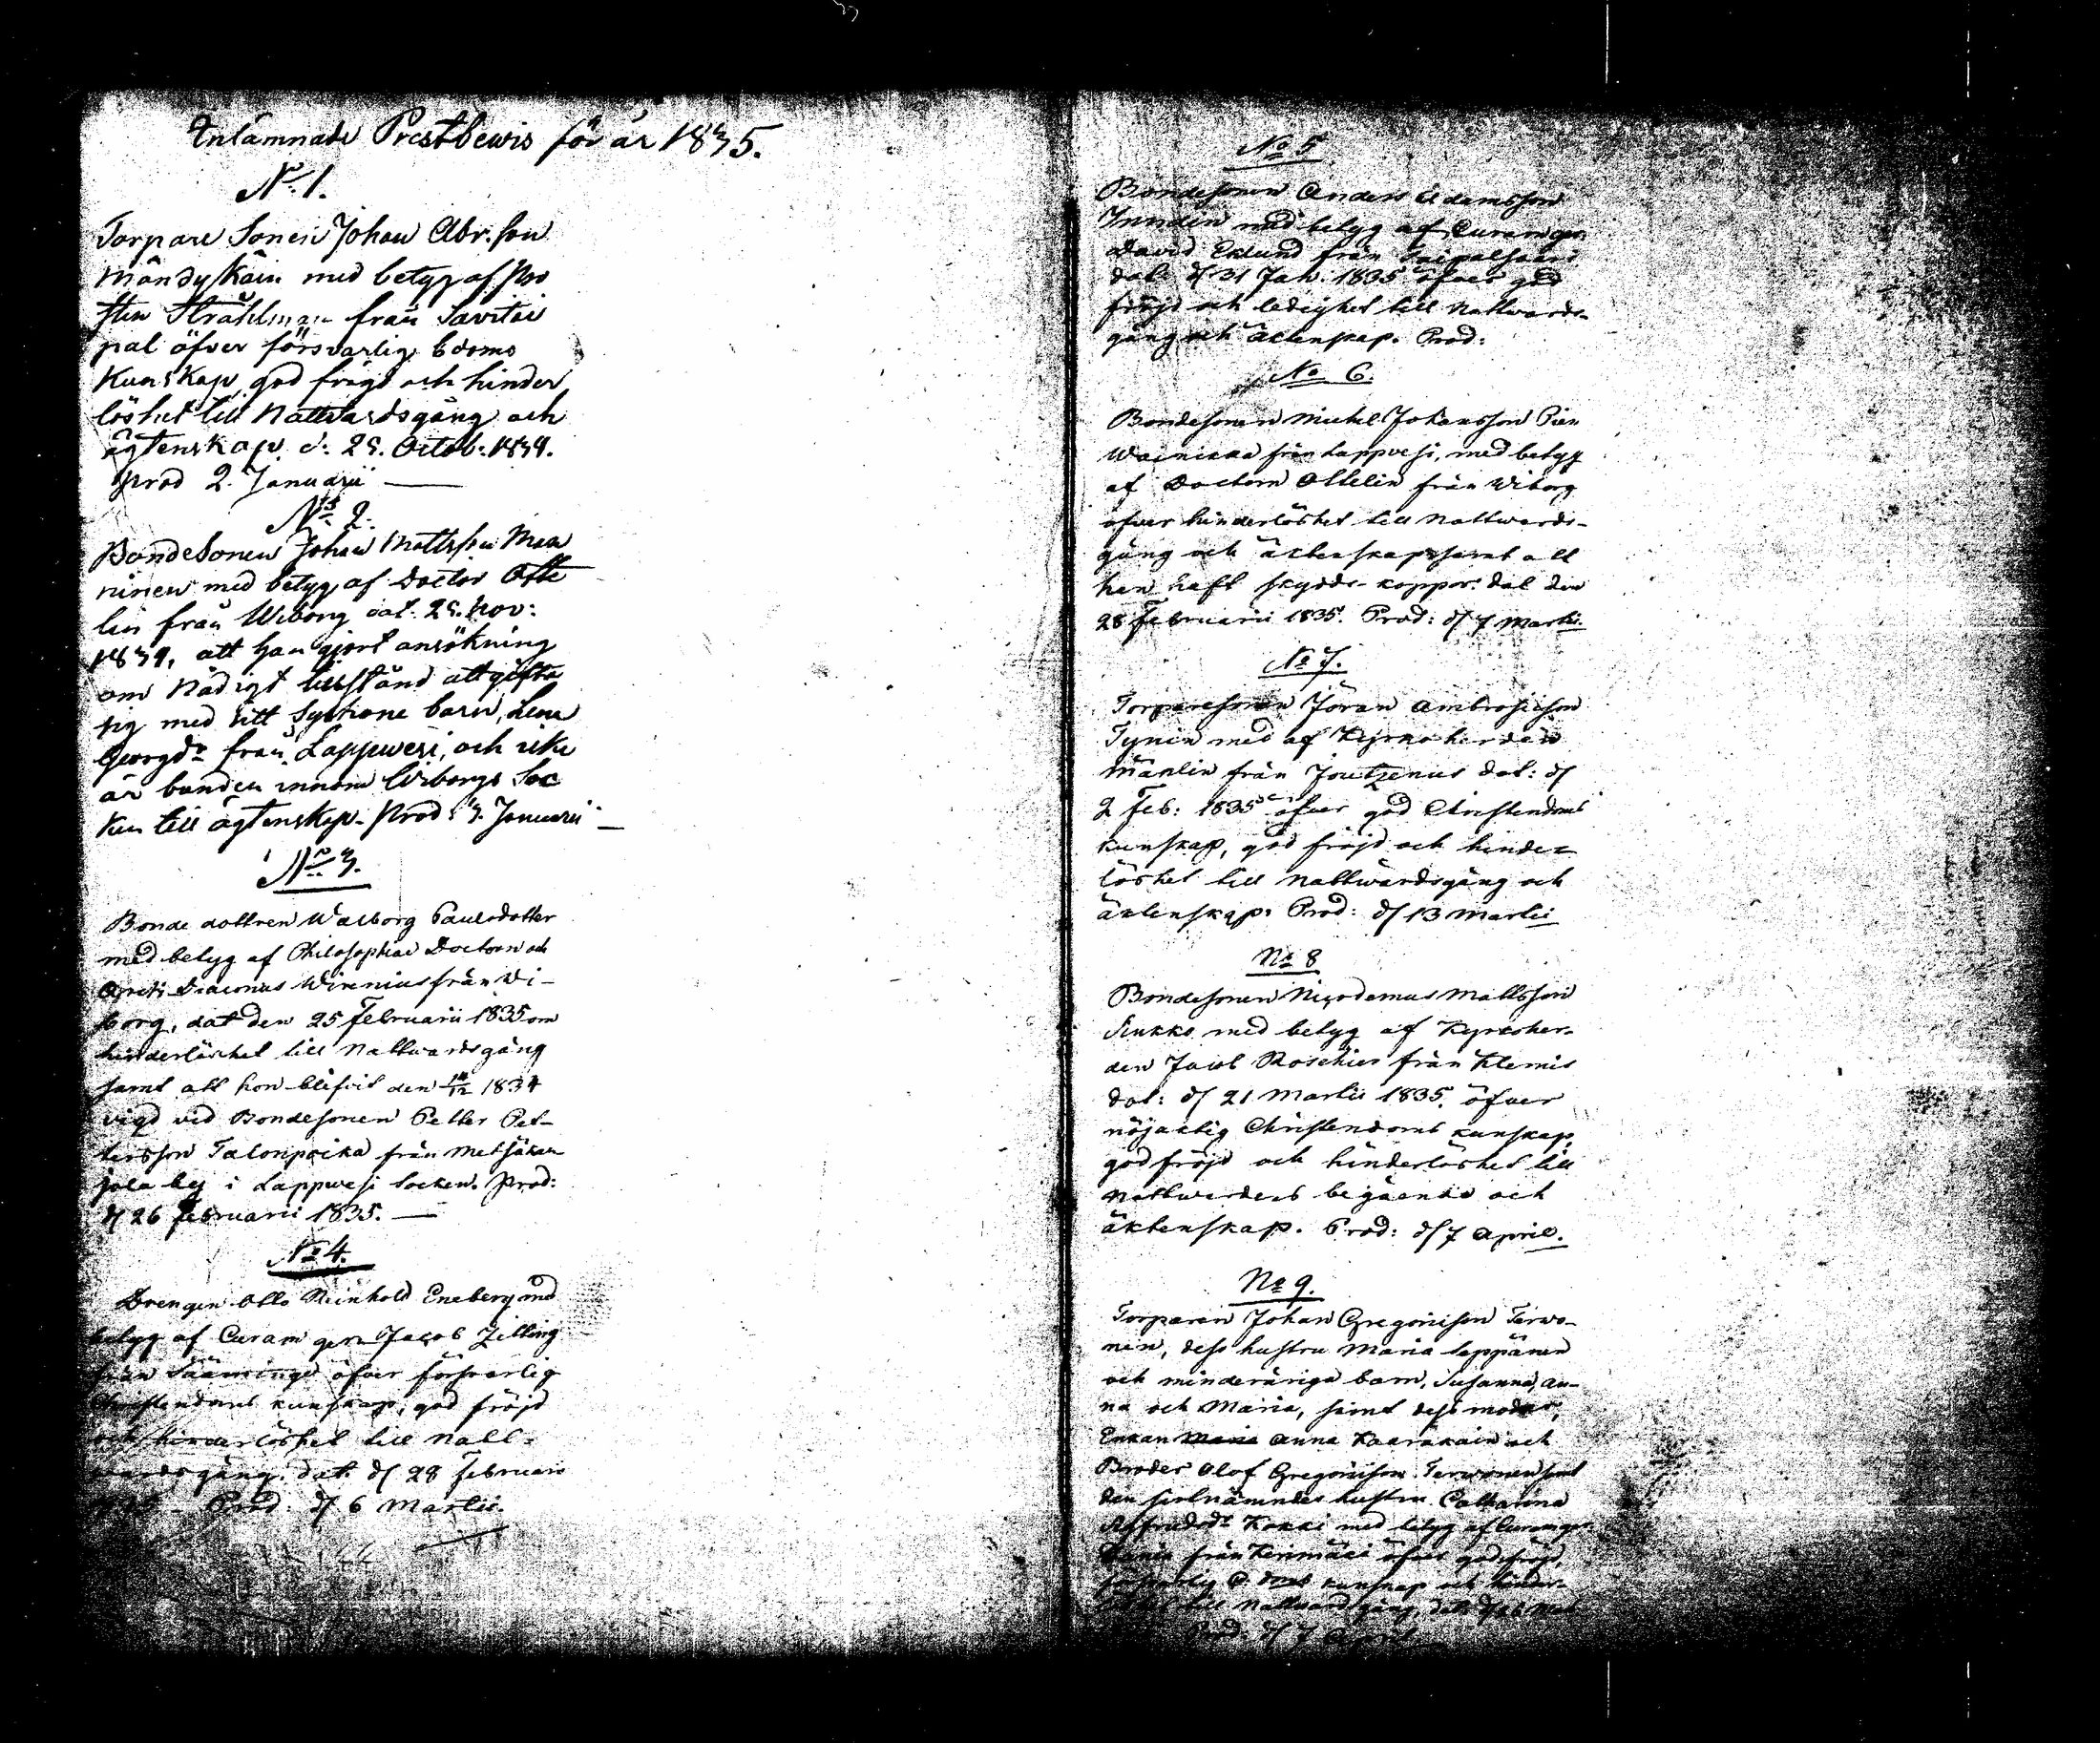 Inlämnade Prestbewis för år 1835.
No 1.
Torpare Sonen Johan Abr.son
Mändyskäin med betyg af Pro
sten Stråhlman från Savitai
pal öfver försvarlig Cdoms
Kunskap, god frägd och hinder
löshet till Nattvardsgång och
ägtenskap d: 29. Octob: 1834.
prod 2. Januarii —
No 2.
Bondesonen Johan Mattsson
ninen med betyg af Doctor Otte
lin från Wiborg dat. 29. Nov:
1834, att han gjort ansökning
om Nådigt tillstånd att gifta
sig med sitt Syskone barn, Lena
Georgdr från Lappwesi, och icke
är bunden innom Wiborgs Soc
ken till ägtenskap. Prod: 3. Januarii —
No 3.
Bonde dottren Walborg Paulsdotter
med betyg af Philosophiae Doctorn och
Direnius från Wi-
borg, dat den 25 Februarii 1835 om
hinderlöshet till Nattwardsgång
samt att hon blifvit den 1834
vigd vid Bondesonen Petter Pet-
tersson Talonpoika från Metsäkan
jola by i Lappwesi Socken. Prod:
d/ 26 Februarii 1835. —
No 4.
Drengen Otto Reinhold Eneberg med
betyg af Curam ger: Jacob Zitting
från Sääminge öfver försvarlig
Christendoms kunskap, god fröjd
och hinderlöshet till Natt-
wardsgång. dat. d/ 28 Februarii
Prod: d/ 6 Martii.
No 5
Bondesonen Anders Adamsson
Innden med betyg af Curam ger:
David Eklund från Taipalsaari
dat: d/ 31 Jan. 1835 öfver god
fröjd och ledighet till Nattwards-
gång och äktenskap. Prod:
No 6.
Bondesonen Michel Johansson Pien
Wainikka från Lappvesi, med betyg
af Doctorn Ottelin från Wiborg
öfver hinderlöshet till Nattwards-
gång och äktenskap samt att
han haft skydds-koppor. dat den
28 Februarii 1835. Prod: d/ 7 Martii.
No 7.
Torparesonen Jöran Ambrosiison
Tynin med af Kyrkoherden
Mänlin från Joutzenus dat: d/
2 Feb: 1835 öfver god Christendoms
kunskap, god fröjd och hinder-
löshet till Nattwardsgång och
äktenskap. Prod: d/ 13 Martii
No 8
Bondesonen Nicodemus Mattsson
Sinkko med betyg af Kyrkoher-
den Jacob Moschier från Klemis
dat: d/ 21 Martii 1835. öfver
nöjaktig Christendoms kunskap,
god fröjd och hinderlöshet till
Nattwardens begående och
äktenskap. Prod: d/ 7 April.
No 9.
Torparen Johan Gregoriison Terwo-
nen, dess hustru Maria Seppänen
och minderåriga barn, Susanna, An-
na och Maria, samt dess moder,
Enkan Maria Anna Kaarakain och
Broder Olof Gregoriison Terwonen samt
den sistnämndes hustru Catharina
Kokki med betyg af Curam ger:
från Kerimäki öfver god fröjd,
kunskap och hinder-
till Nattwardsgång,
Prod: d/ 7 April